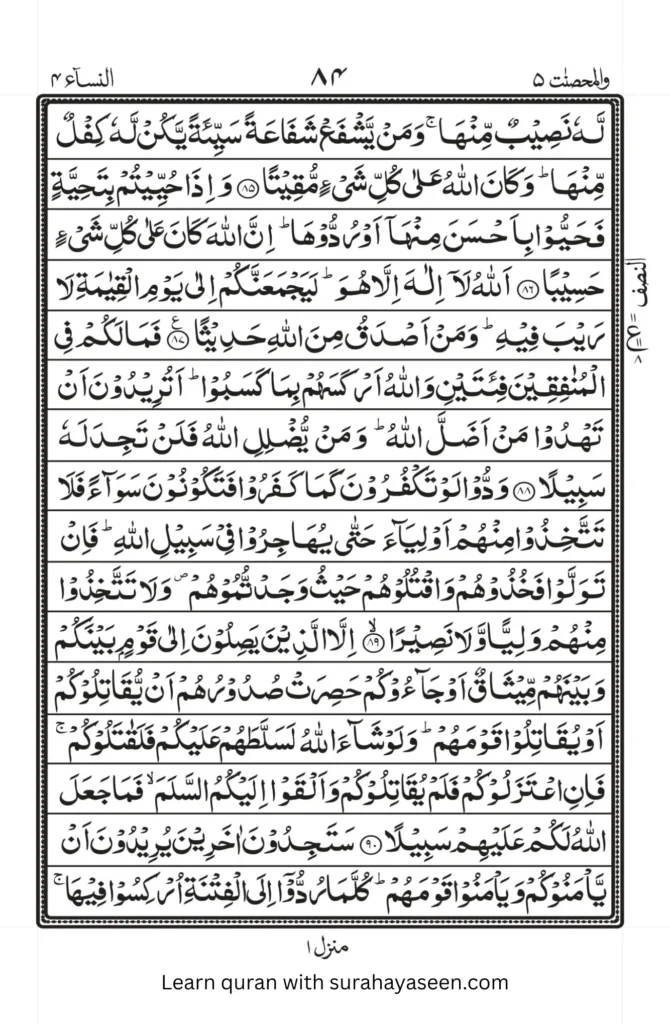 والمحصنٰت ۵ ۸۴ النسآء ۴
لَّهٗ نَصِيْبٌ مِّنْهَا ۚ وَمَنْ يَّشْفَعْ شَفَاعَةً سَيِّئَةً يَّكُنْ لَّهٗ كِفْلٌ
مِّنْهَا ؕ وَكَانَ اللّٰهُ عَلٰى كُلِّ شَىْءٍ مُّقِيْتًا ۸۵ وَاِذَا حُيِّيْتُمْ بِتَحِيَّةٍ
فَحَيُّوْا بِاَحْسَنَ مِنْهَاۤ اَوْ رُدُّوْهَا ؕ اِنَّ اللّٰهَ كَانَ عَلٰى كُلِّ شَىْءٍ
حَسِيْبًا ۸۶ اَللّٰهُ لَاۤ اِلٰهَ اِلَّا هُوَ ؕ لَيَجْمَعَنَّكُمْ اِلٰى يَوْمِ الْقِيٰمَةِ لَا
رَيْبَ فِيْهِ ؕ وَمَنْ اَصْدَقُ مِنَ اللّٰهِ حَدِيْثًا ۸۷ ع فَمَا لَكُمْ فِى
الْمُنٰفِقِيْنَ فِئَتَيْنِ وَاللّٰهُ اَرْكَسَهُمْ بِمَا كَسَبُوْا ؕ اَتُرِيْدُوْنَ اَنْ
تَهْدُوْا مَنْ اَضَلَّ اللّٰهُ ؕ وَمَنْ يُّضْلِلِ اللّٰهُ فَلَنْ تَجِدَ لَهٗ
سَبِيْلًا ۸۸ وَدُّوْا لَوْ تَكْفُرُوْنَ كَمَا كَفَرُوْا فَتَكُوْنُوْنَ سَوَآءً فَلَا
تَتَّخِذُوْا مِنْهُمْ اَوْلِيَآءَ حَتّٰى يُهَاجِرُوْا فِىْ سَبِيْلِ اللّٰهِ ؕ فَاِنْ
تَوَلَّوْا فَخُذُوْهُمْ وَاقْتُلُوْهُمْ حَيْثُ وَجَدْتُّمُوْهُمْ ص وَلَا تَتَّخِذُوْا
مِنْهُمْ وَلِيًّا وَّلَا نَصِيْرًا ۸۹ ۙ اِلَّا الَّذِيْنَ يَصِلُوْنَ اِلٰى قَوْمٍۭ بَيْنَكُمْ
وَبَيْنَهُمْ مِّيْثَاقٌ اَوْ جَآءُوْكُمْ حَصِرَتْ صُدُوْرُهُمْ اَنْ يُّقَاتِلُوْكُمْ
اَوْ يُقَاتِلُوْا قَوْمَهُمْ ؕ وَلَوْ شَآءَ اللّٰهُ لَسَلَّطَهُمْ عَلَيْكُمْ فَلَقٰتَلُوْكُمْ ۚ
فَاِنِ اعْتَزَلُوْكُمْ فَلَمْ يُقَاتِلُوْكُمْ وَاَلْقَوْا اِلَيْكُمُ السَّلَمَ ۙ فَمَا جَعَلَ
اللّٰهُ لَكُمْ عَلَيْهِمْ سَبِيْلًا ۹۰ سَتَجِدُوْنَ اٰخَرِيْنَ يُرِيْدُوْنَ اَنْ
يَّاْمَنُوْكُمْ وَيَاْمَنُوْا قَوْمَهُمْ ؕ كُلَّمَا رُدُّوْۤا اِلَى الْفِتْنَةِ اُرْكِسُوْا فِيْهَا ۚ
النصف
ع
۸
منزل ۱
Learn quran with surahayaseen.com